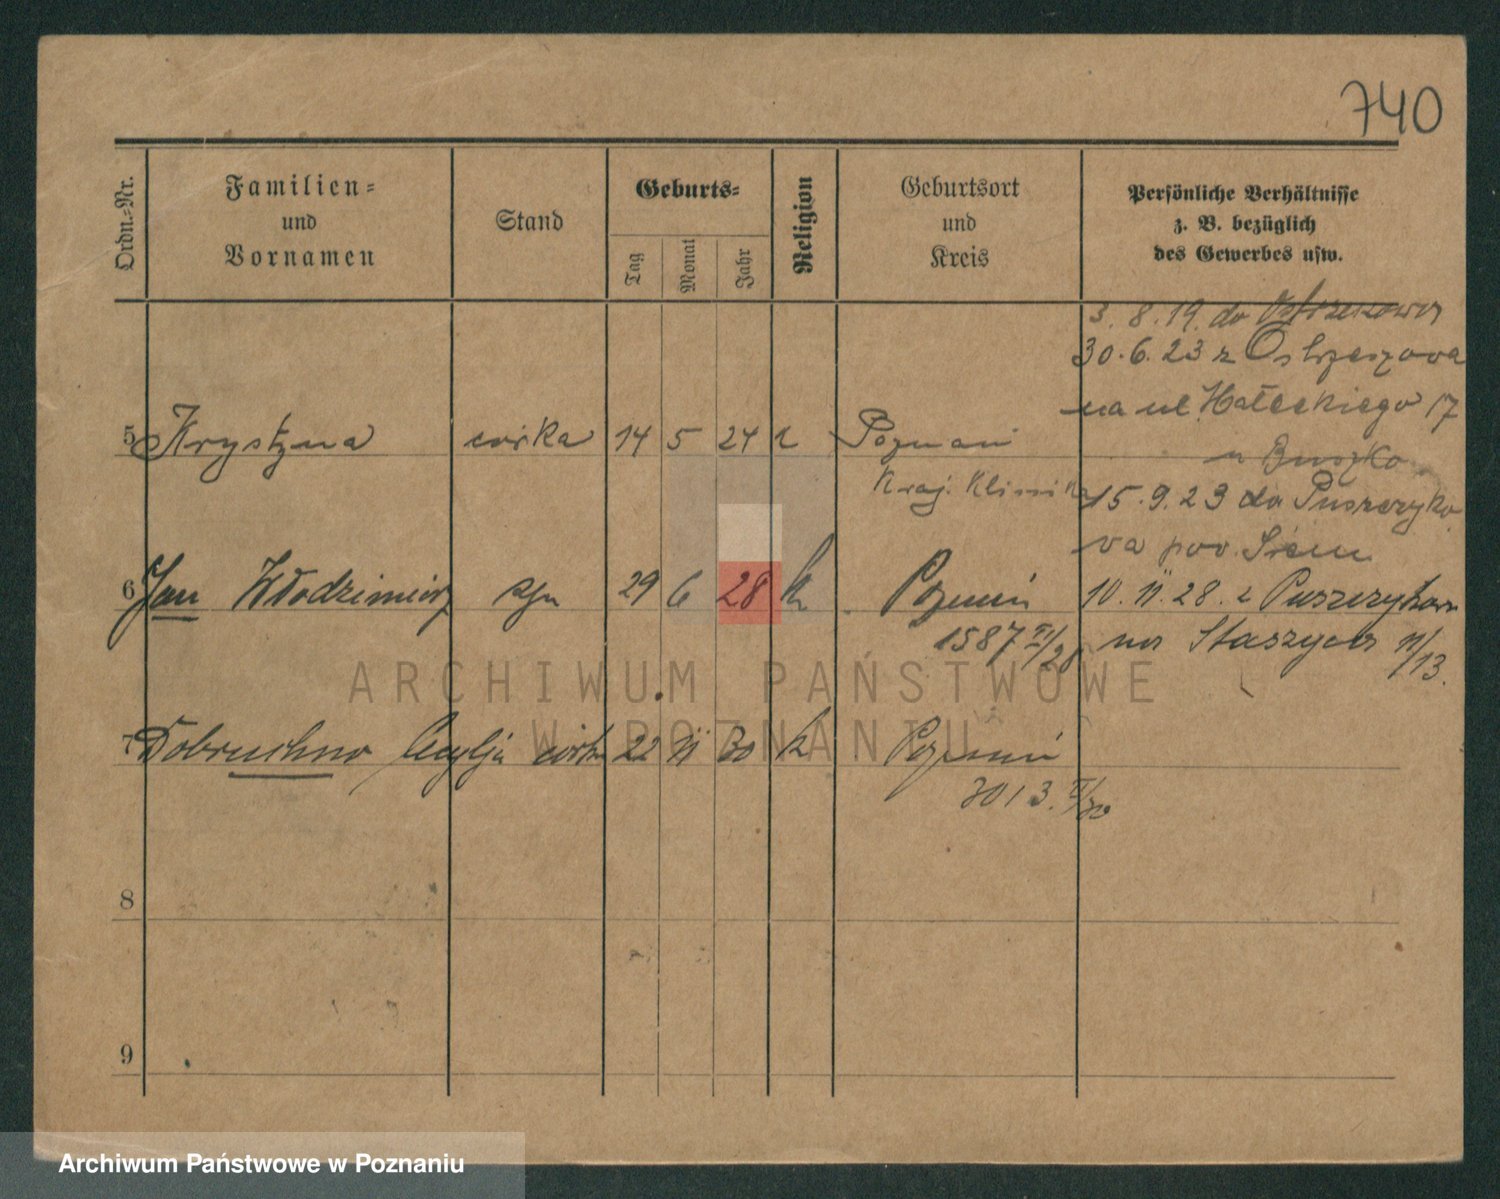 740
Ordn.-Nr.
Familien-
und
Vornamen
Stand
Geburts-
Tag
Monat
Jahr
Religion
Geburtsort
und
Kreis
Persönliche Verhältnisse
z. B. bezüglich
des Gewerbes usw.
3. 8. 19. do Ostrzeszowa
30. 6. 23 z Ostrzeszowa
na ul Hałeckiego 17
u Buszko
15. 9. 23 do Puszczyko
wa pow. Śrem
10. 11. 28. z Puszczykowa
na Staszyca 11/13.
5 Krystyna córka 14 5 24 k Poznań
Kraj. Klinika
6 Jan Włodzimierz syn 29 6 28 k Poznań
1587 VI/28
7 Dobruchna Cecylja córka 22 11 30 k Poznań
3013.
8
9
ARCHIWUM PAŃSTWOWE
W POZNANIU
Archiwum Państwowe w Poznaniu